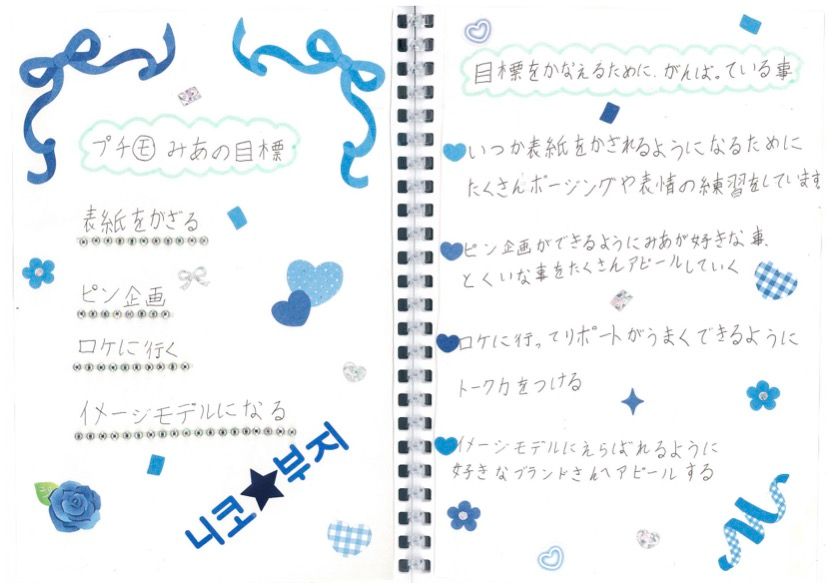 プチ㋲ みあの目標
表紙をかざる
ピン企画
ロケに行く
イメージモデルになる
니코★부지
目標をかなえるために、がんばっている事
いつか表紙をかざれるようになるために
たくさんポージングや表情の練習をしています
ピン企画ができるようにみあが好きな事、
とくいな事をたくさんアピールしていく
ロケに行ってリポートがうまくできるように
トーク力をつける
イメージモデルにえらばれるように
好きなブランドさんへアピールする